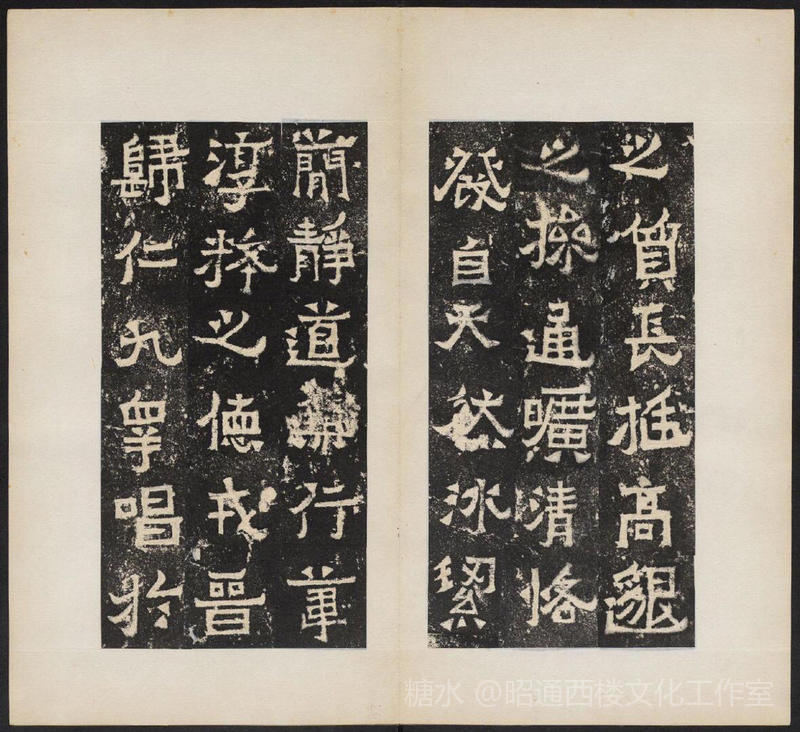 之質長挺高邈
之操通曠清恪
發自天然冰絜
簡靜道兼行葦
淳粹之德戎晉
歸仁九皋唱於
糖水 @昭通西楼文化工作室